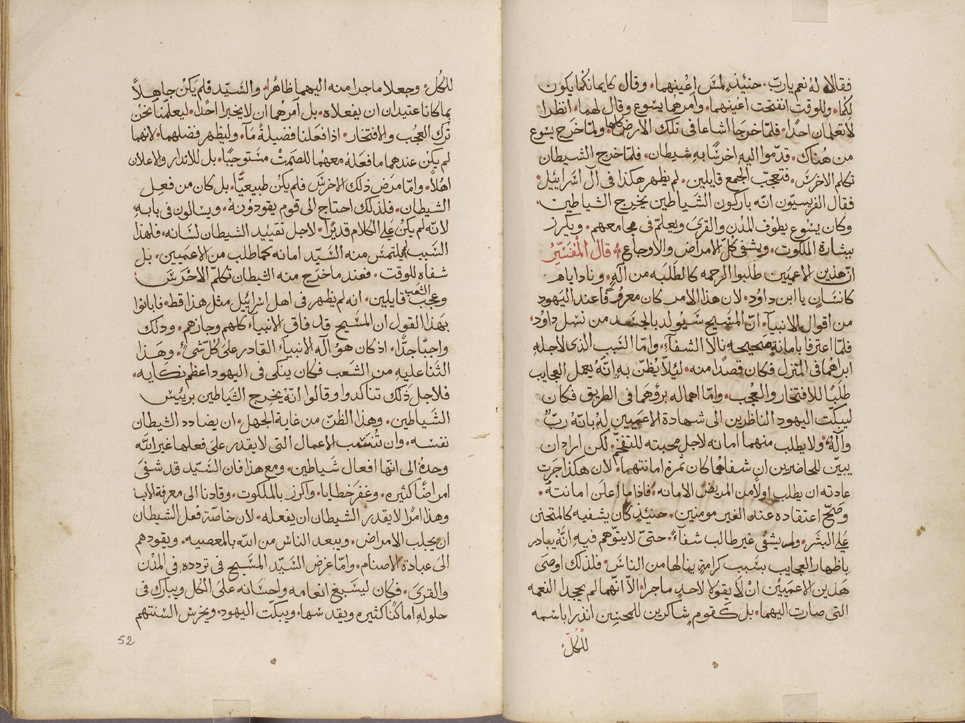 فقالا له نعم يارب. حنيئذ لمس اعينهما. وقال كايمانكما يكون
لكما. وللوقت انفتحت اعينهما. وامرهما يسوع وقال لهما. انظرا
لا تعلمان احدا. فلما خرجا اشاعا في تلك الارض كلها ولما خرج يسوع
من هناك. قدموا اليه اخرسًا به شيطان. فلما خرج الشيطان
تكلم الاخرس. فتعجب الجمع قايلين. لم يظهر هكذا في آل اسراييل.
فقال الفريسيون انه باركون الشياطين يخرج الشياطين.
وكان يسوع يطوف المدن والقرى ويعلم في مجامعهم. ويكرز
ببشارة الملكوت. ويشفي كل الامراض والاوجاع قال المفسّر
ان هذين الاعميين طلبوا الرحمه كالطلبه من اله. وناداياه
كانسان ياابن داود. لان هذا الامر كان معروفًا عند اليهود
من اقوال الانبيا. ان المسيح سيولد بالجسد من نسل داود.
فلما اعترفا بامانة صحيحه نالا الشفا. واما السبب الذي لاجله
ابراهما في المنزل فكان قصدًا منه. ليلا يُظن به انه يعمل العجايب
طلبًا للافتخار والعجب. واما اهماله بروهما في الطريق فكان
ليبكت اليهود الناظرين الى شهادة الاعميين له بانه ربٌ
واله. ولا يطلب منهما امانه لاجل محبته للتفخر. لكن اراد ان
يبين للحاضرين ان شفاهما كان ثمرة امانتهما. لان هكذا جرت
عادته ان يطلب اولًا من المريض الامانه. فاذا ما اعلن امانته.
وصحّ اعتقاده عند الغير مومنين. حنيئذ كان يشفيه كالمتحنن
على البشر. ولم يشفي غير طالب شفاءً. حتى لا يتوهم فيه انه يبادر
باظهار العجايب بسبب كرامة ينالها من الناس. فلذلك اوصى
هذين الاعميين ان لا يقولا لاحد ماجرا. الا انهما لم يجحدا النعمه
التي صارت اليهما. بل كقوم شاكرين للمحسن انذرا باسمه
للكل.
للكل. وجعلا ماجرا منه اليهما ظاهرًا. والسيد فلم يكن جاهلًا
بما كانا عتيدان ان يفعلاه. بل امرهما ان لا يخبرا احدًا. ليعلمنا نحن
ترك العجب والافتخار. اذا فعلنا فضيلةً مآ. وليظهر فضلهما. لانهما
لم يكن عندهما مافعله معهما للصمت مستوجبًا. بل للانذار والاعلان
اهلًا. واما مرض ذلك الاخرس فلم يكن طبيعيًا. بل كان من فعل
الشيطان. فلذلك احتاج الى قوم يقودونه. ويسالون في بابه
لانه لم يكن على الكلام قديرًا. لاجل تقييد الشيطان لسانه. فلهذا
السبب لم يلتمس منه السيد امانه كما طلب من الاعميين. بل
شفاه للوقت. فعند ماخرج منه الشيطان تكلم الاخرس
وعجب الشعب قايلين. انه لم يظهر في اهل اسراييل مثل هذا قط. فابانوا
بهذا القول ان المسيح قد فاق الانبيا كلهم وجازهم. وذلك
واجبًا جدًا. اذ كان هو اله الانبيا. القادر على كل شي. وهذا
الثنا عليه من الشعب فكان ينكى في اليهود اعظم نكايه.
فلاجل ذلك تناكدوا وقالوا انه يخرج الشياطين بريئس
الشياطين. وهذا الظن من غاية الجهل. ان يضادد الشيطان
نفسه. وان تنسب الاعمال التي لا يقدر على فعلها غير الله
وحده الى انها افعال شياطين. ومع هذا فان السيد قد شفى
امراضًا كثيره. وغفر خطايا. واكرز بالملكوت. وقادنا الى معرفة الاب
وهذا امرًا لا يقدر الشيطان ان يفعله. لان خاصة فعل الشيطان
ان يجلب الامراض. ويبعد الناس من الله بالمعصيه. ويقودهم
الى عبادة الاصنام. واما غرض السيد المسيح في تردده في المدن
والقرى. فكان ليسبغ انعامه واحسانه على الكل ويبارك في
حلوله اماكنًا كثيره ويقدسها. ويبكت اليهود. ويخرس السنتهم
52